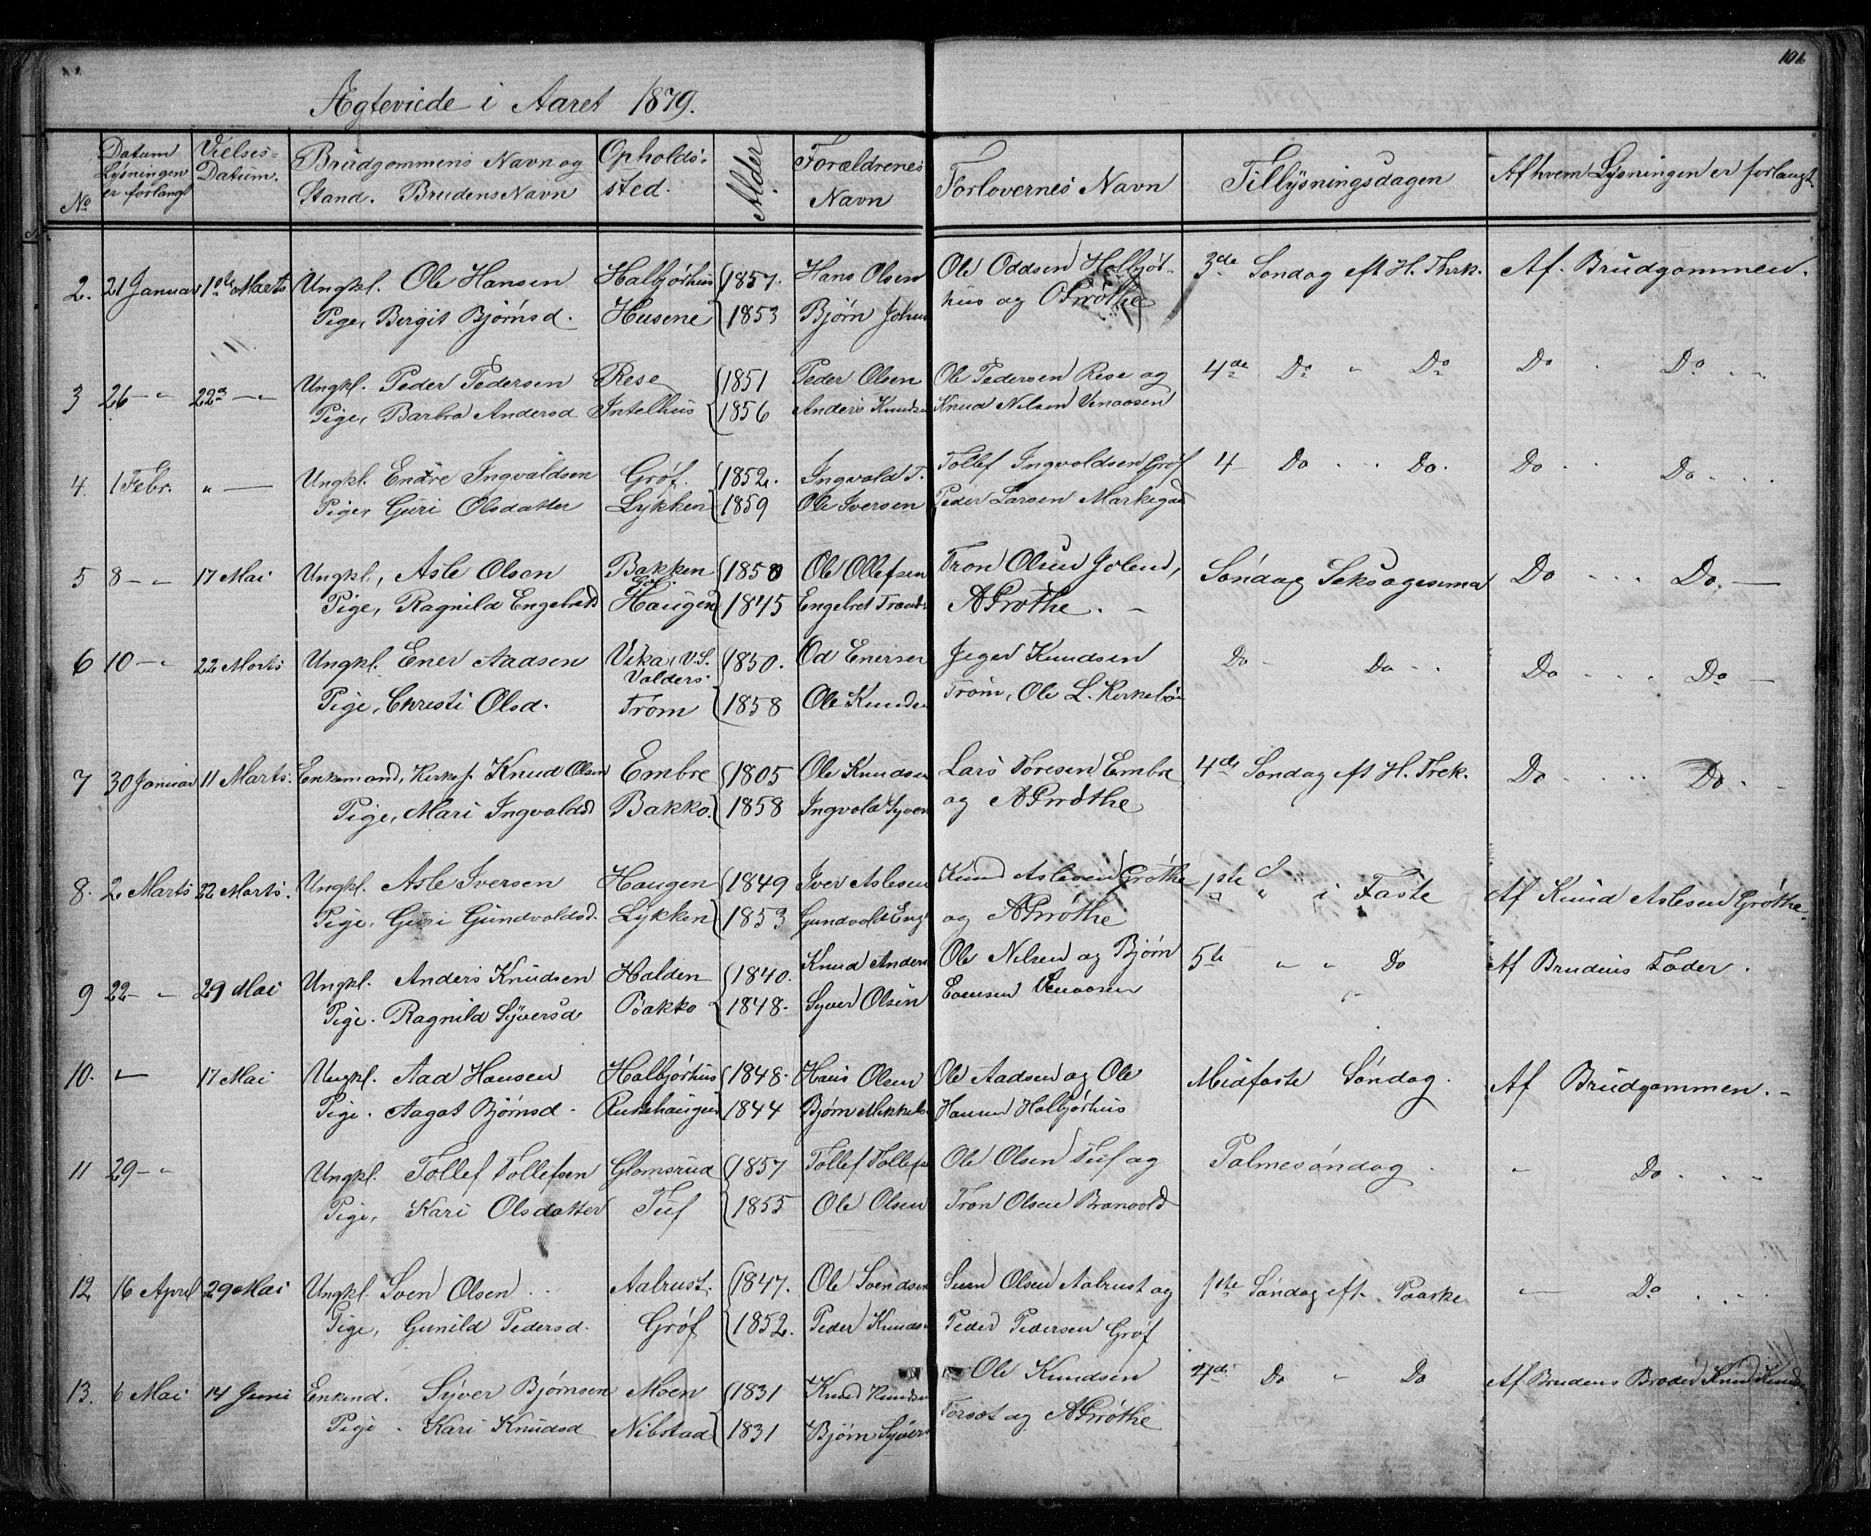 101
Ægteviede i Aaret 1879.
No Datum Lysningen er forlangt Vielses= Datum. Brudgommens Navn og Stand. Brudens Navn Opholds= sted. Alder Forældrenes Navn Forlovernes Navn Tillysningsdagen Af hvem Lysningen er forlangt
2. 21 Januar 1ste Marts Ungkl. Ole Hansen Halbjørhus 1857. Hans Olsen Ole Oddsen Halbjør- 3de Søndag eft H. Thrk. Af Brudgommen.
Pige, Bergit Bjørnsd. Husene 1853 Bjørn Johns hus og Grøthe
3 26 - " 22d - " Ungkl. Peder Pedersen Rese 1851 Peder Olsen Ole Pedersen Rese og 4de Do " Do Do . Do . .
Pige, Barbra Andersd Intelhus 1856 Anders Knudsen Knud Nilsen Venaasen
4. 1 Febr. " — Ungkl. Endre Ingvaldsen Grøf. 1852. Ingvald T. Tollef Ingvoldsen Grøf 4 Do . . Do. Do . . Do . . .
Pige, Guri Olsdatter Lykken 1859 Ole Iversen Peder Larsen Markegaa
5 8 - " 17 Mai Ungkl, Asle Olsen Bakken 1850 Ole Ollefsen Tron Olsen Golend, Søndag Seksagesima Do . . . Do. —
Gol.
Pige, Ragnild Engebretsd Haugen 1845 Engebret Trond AGrøthe. -
6 10 - " 22 Marts Ungkl. Ener Aadsen Vika, V.S. 1850. Od Enersen Jeger Knudsen Do - Do - . Do . . . Do —
Valders.
Pige, Christi Olsd. Trøm 1858 Ole Knudsen Trøm, Ole L. Kirkebøn
7 30 Januar 11 Marts. Enkemand, Kirkes. Knud Olsen Embre 1805 Ole Knudsen Lars Toresen Embre 4de Søndag eft H. Trek. Do . . . . Do . -
Pige, Mari Ingvoldsd Bakko. 1858 Ingvold Syvers og AGrøthe
8. 2 Marts 22 Marts. Ungkl. Asle Iversen Haugen 1849 Iver Aslesen Knud Aslesen Grøthe 1ste S " i Faste Af Knud Aslesen Grøthe.
Pige, Guri Gundvoldsd. Lykken 1853 Gundvold Eng og AGrøthe
9 22 - " 29 Mai Ungkl. Anders Knudsen Halden 1840. Knud Anders Ole Nilsen og Bjørn 5te " " Do Af Brudens Fader.
Pige. Ragnild Syversd Bakko 1848. Syver Olsen Evensen Venaasen
10. " 17 Mai Ungkl. Aad Hansen Halbjørhus 1848. Hans Olsen Ole Aadsen og Ole Midfaste Søndag. Af Brudgommen. -
Pige. Aagot Bjørnsd. Rukehaugen 1844 Bjørn Mikkels. Hansen Halbjørhus
11 29 - " Ungkl. Tollef Tollefsen Glomsrud 1857 Tollef Tollefs Ole Olsen Tuf og Palmesøndag. " Do . . .
Pige, Kari Olsdatter Tuf 1855 Ole Olsen Tron Olsen Branvold
12 16 April 29 Mai Ungkl. Sven Olsen . . Aalrust. 1847. Ole Svendsen Sven Olsen Aalrust og 1ste Søndag eft. Paaske " Do . . .
Pige, Gunild Pedersd. Grøf 1852. Peder Knuds. Peder Pedersen Grøf
13. 6 Mai 14 Juni Enkmd. Syver Bjørnsen Moen 1831 Knud Knudsen Ole Knudsen 4de Do " Do Af Brudens Broder Knud Knuds
Pige . Kari Knudsd Nibstad 1831 Bjørn Syvers Torset og AGrøthe